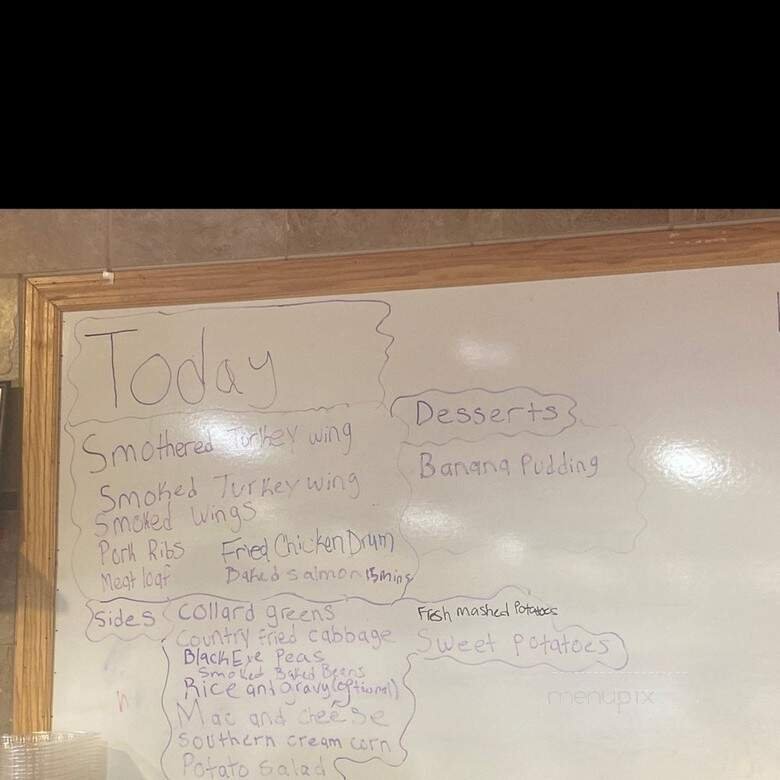 Today
Smothered Turkey wing
Smoked Turkey wing
Smoked Wings
Pork Ribs
Fried Chicken Drum
Meat loaf
Baked salmon 15 mins
Desserts
Banana Pudding
Sides
Collard greens
Country Fried cabbage
Black Eye Peas
Smoked Baked Beans
Rice and gravy (optional)
Mac and cheese
Southern cream corn
Potato Salad
Fresh mashed Potatoes
Sweet potatoes
menupix